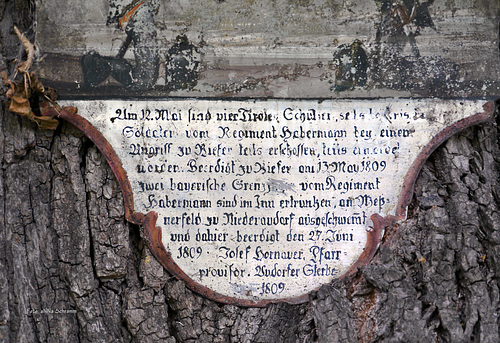 Am 12. Mai sind vier Tiroler Schützen, sechs
Soldaten vom Regiment Habermann bey einem
Angriff zu Kiefer teils erschossen, teils
worden. Beerdigt zu Kiefer am 13. May 1809
zwei bayerische vom Regiment
Habermann sind im Inn ertrunken, am Weß-
nerfeld zu Niederaudorf ausgeschwemt
und dahier beerdigt den 27. Juni
1809 Josef Hornauer, Pfarr-
provisor. Audorfer Sterbe
1809